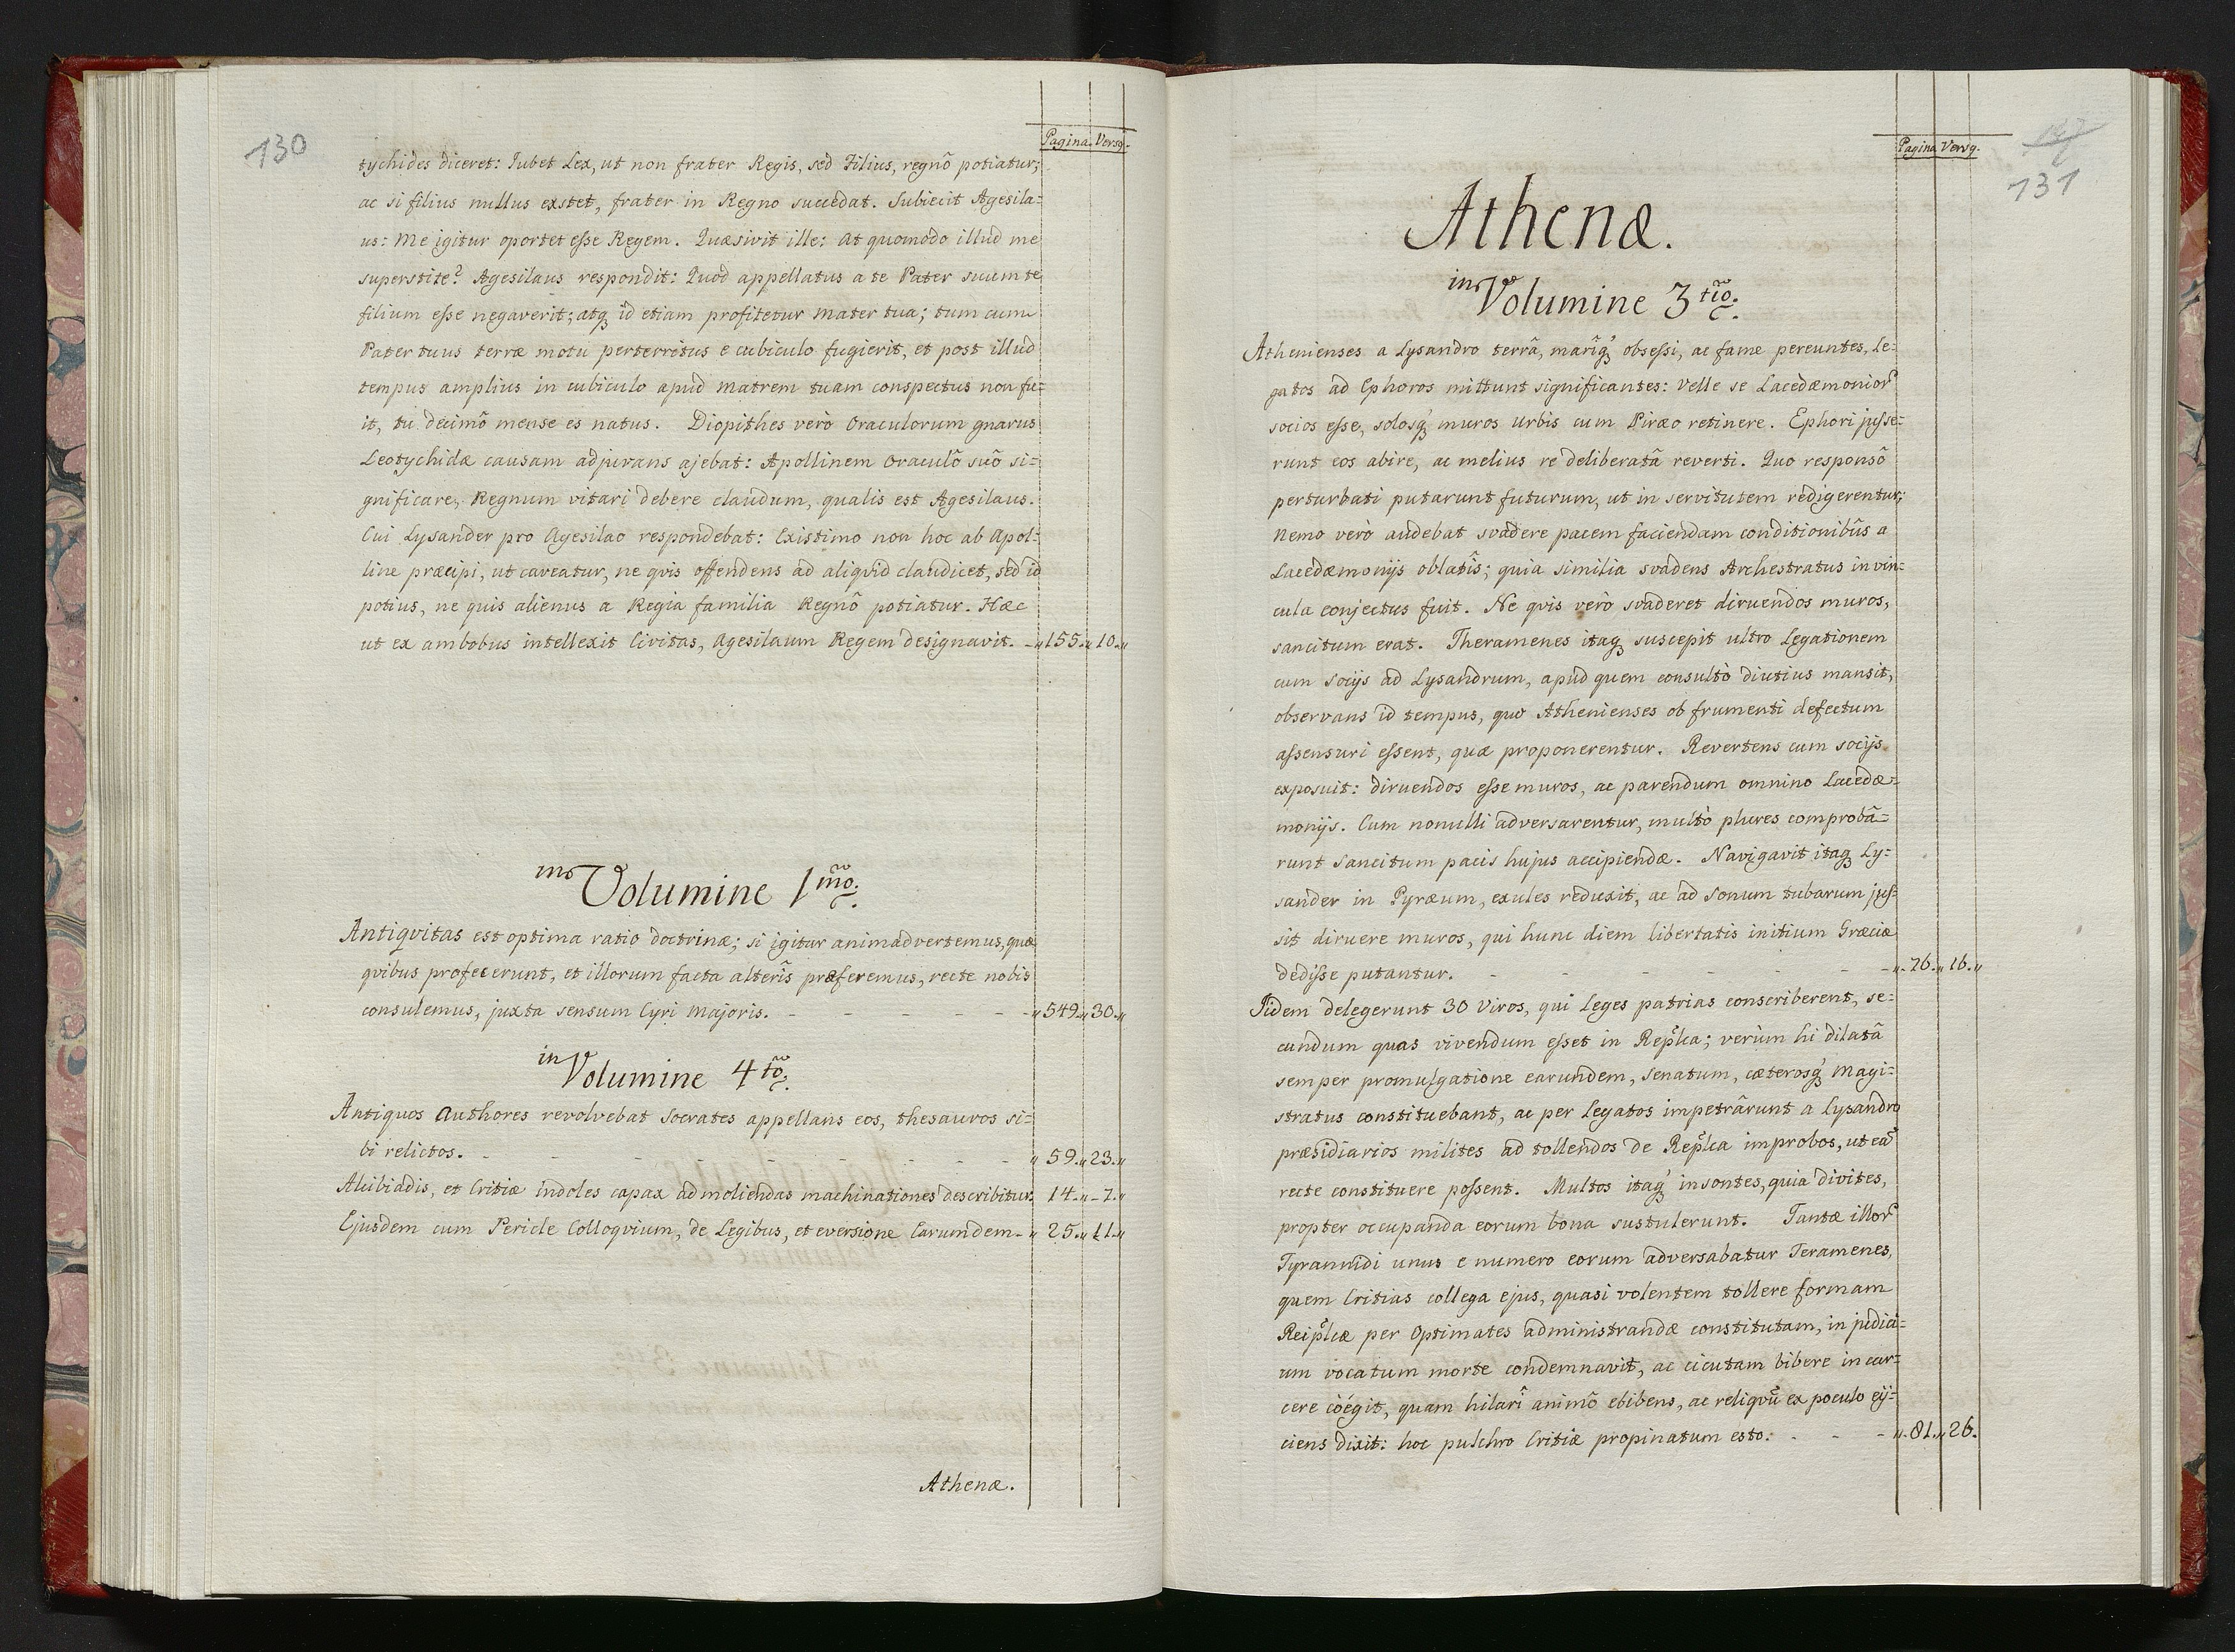 130
Pagina. Versq.
tychides diceret: Jubet Lex, ut non frater Regis, sed Filius, regnô potiatur;
ac si filius nullus exstet, frater in Regno succedat. Subiecit Agesila=
us: Me igitur oportet esse Regem. Quæsivit ille: At quomodo illud me
superstite? Agesilaus respondit: Quod appellatus a te Pater suum te
filium esse negaverit; atq id etiam profitetur Mater tua; tum cum
Pater tuus terræ motu perterritus e cubiculo fugierit, et post illud
tempus amplius in cubiculo apud Matrem tuam conspectus non fu=
it, tu decimô mense es natus. Diopithes verò Oraculorum gnarus
Leotychidæ causam adjurans ajebat: Apollinem Oraculô suô si=
gnificare, Regnum vitari debere claudum, qualis est Agesilaus.
Cui Lysander pro Agesilao respondebat: Existimo non hoc ab Apol=
line præcipi, ut caveatur, ne qvis offendens ad aliqvid claudicet, sed id
potius, ne quis alienus a Regia familia Regnô potiatur. Hæc
ut ex ambobus intellexit Civitas, Agesilaum Regem designavit. -„155.„10.„
in Volumine 1mo.
Antiqvitas est optima ratio doctrinæ; si igitur animadvertemus, quæ
qvibus profecerunt, et illorum facta alterîs præferemus, recte nobis
consulemus, juxta sensum Cyri Majoris. - - - - - -„549.„30.„
in Volumine 4to.
Antiquos Authores revolvebat Socrates appellans eos, thesauros si=
bi relictos. - - - - - - - - - „59.„23.„
Alcibiadis, et Critiæ indoles capax ad moliendas machinationes describitur. 14.„-7.„
Ejusdem cum Pericle Colloqvium, de Legibus, et eversione Earumdem-„ 25.„41.„
Athenæ.
131
Pagina Versq.
Athenæ.
in Volumine 3tio.
Athenienses a Lysandro terrâ, mariq obsessi, ac fame pereuntes, Le=
gatos ad Ephoros mittunt significantes: Velle se Lacedæmonior
socios esse, solosq muros Urbis cum Piræo retinere. Ephori jusse=
runt eos abire, ac melius re deliberatâ reverti. Quo responsô
perturbati putarunt futurum, ut in servitutem redigerentur;
Nemo verò audebat svadere pacem faciendam conditionibûs a
Lacedæmonijs oblatîs; quia similia svadens Archestratus in vin=
cula conjectus fuit. Ne qvis verò svaderet diruendos muros,
sancitum erat. Theramenes itaq suscepit ultro Legationem
cum Socijs ad Lysandrum, apud quem consultò diutius mansit,
observans id tempus, quo Athenienses ob frumenti defectum
assensuri essent, quæ proponerentur. Revertens cum socijs
exposuit: diruendos esse muros, ac parendum omnino Lacedæ=
monijs. Cum nonulli adversarentur, multò plures comprobâ=
runt Sancitum pacis hujus accipiendæ. Navigavit itaq Ly=
sander in Pyræum, exules reduxit, ac ad Sonum tubarum jus=
sit diruere muros, qui hunc diem libertatis initium Græciæ
dedisse putantur. - - - - - - -„-76.„16.„
Jidem delegerunt 30 Viros, qui Leges patrias conscriberent, se=
cundum quas vivendum esset in Replca; verùm hi dilatâ
semper promulgatione earundem, Senatum, cæterosq Magi=
stratus constituebant, ac per Legatos impetrârunt a Lysandro
præsidiarios milites ad tollendos de Replca improbos, ut ea
recte constituere possent. Multos itaq insontes, quia divites,
propter occupanda eorum bona sustulerunt. Tantæ illor
Tyrannidi unus e numero eorum adversabatur Teramenes,
quem Critias collega ejus, quasi volentem tollere formam
Reiplcæ per Optimates administrandæ constitutam, in judici=
um vocatum morte condemnavit, ac cicutam bibere in car=
cere coëgit, quam hilarî animô ebibens, ac reliqvũ ex poculo eij=
ciens dixit: hoc pulchro Critiæ propinatum esto. - - -„-81.„26.